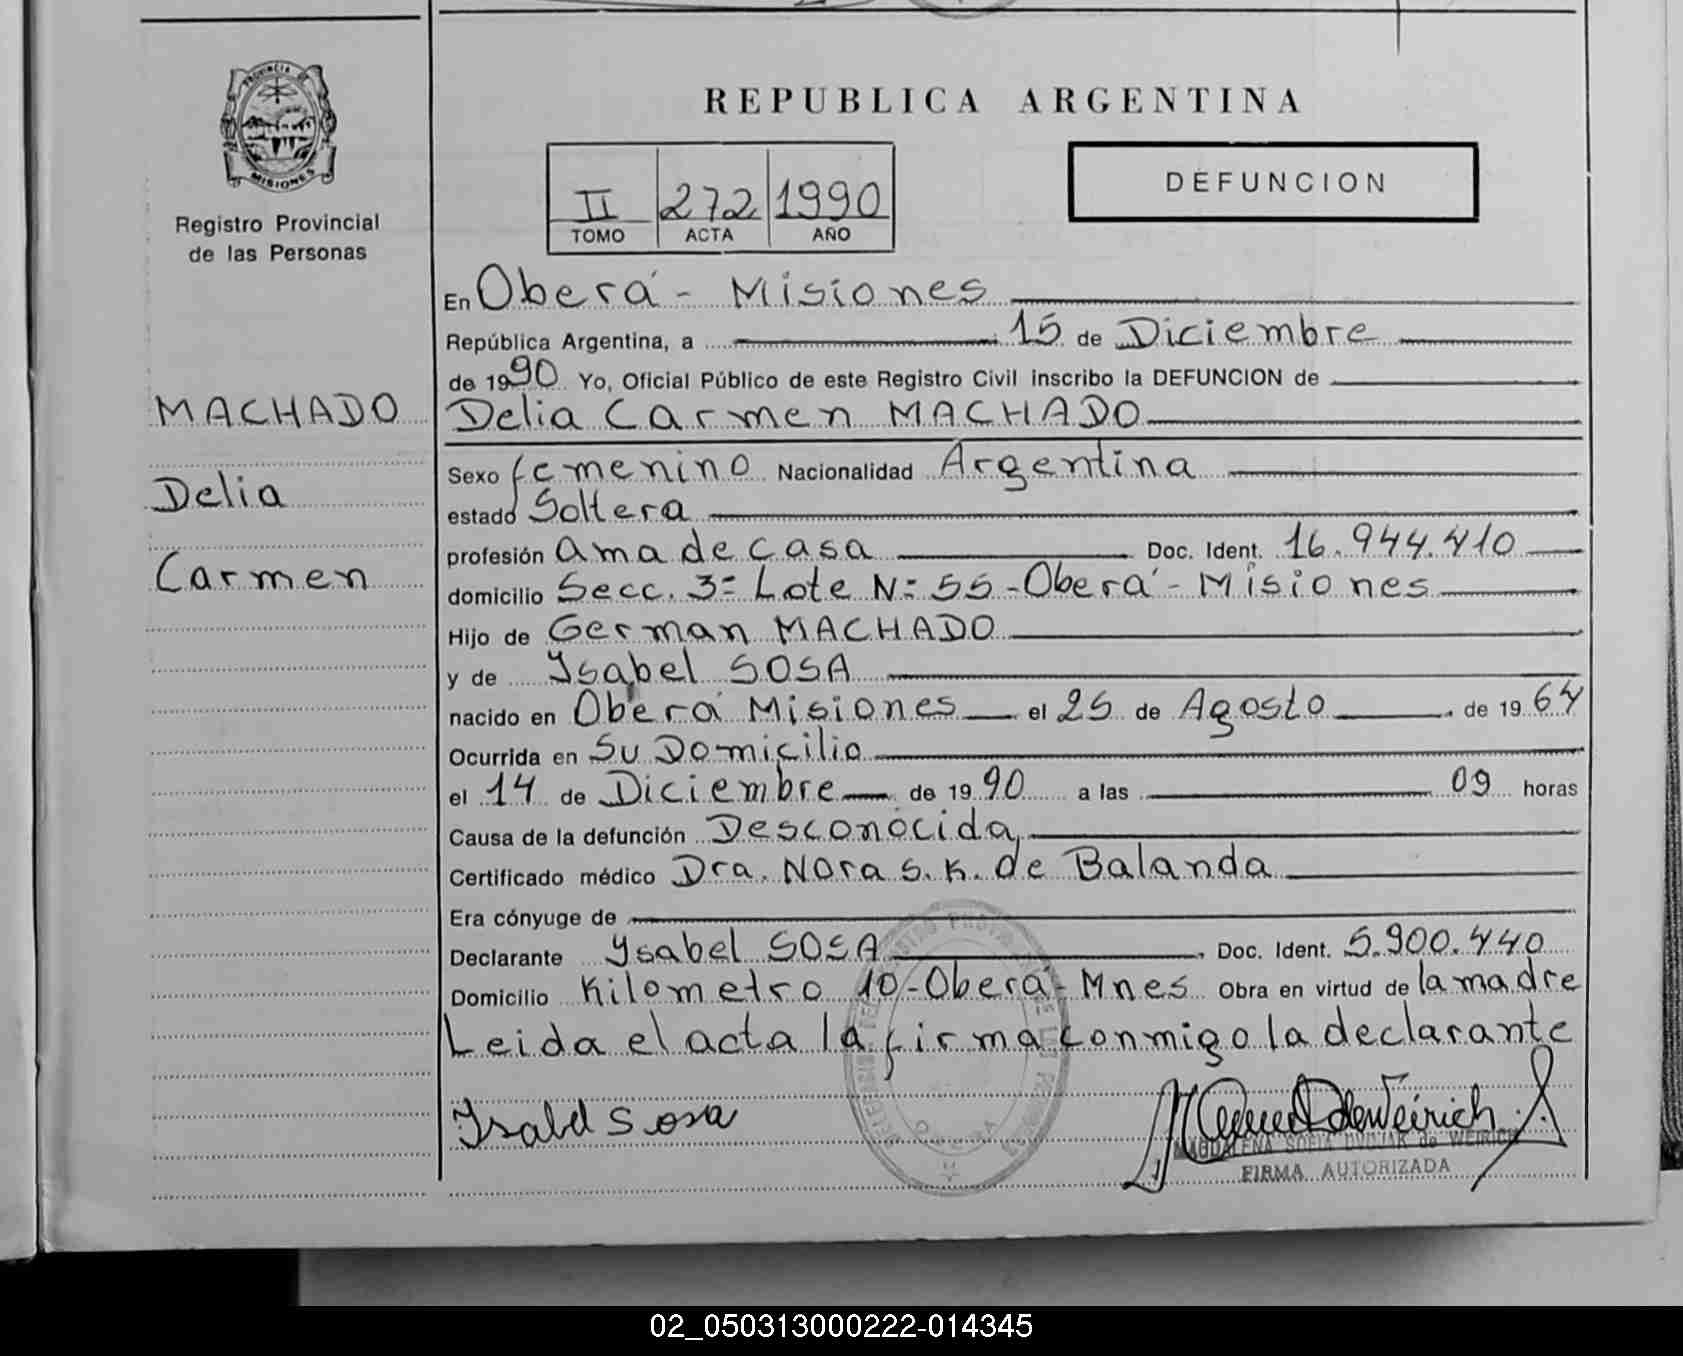 PROVINCIA DE
MISIONES
Registro Provincial
de las Personas
MACHADO
Delia
Carmen
REPUBLICA ARGENTINA
II 272 1990
TOMO ACTA AÑO
DEFUNCION
En Oberá - Misiones
República Argentina, a 15 de Diciembre
de 1990 Yo, Oficial Público de este Registro Civil inscribo la DEFUNCION de
Delia Carmen MACHADO
Sexo femenino Nacionalidad Argentina
estado Soltera
profesión ama de casa Doc. Ident. 16.944.410
domicilio Secc. 3= Lote N: 55 - Oberá - Misiones
Hijo de German MACHADO
y de Ysabel SOSA
nacido en Oberá Misiones el 25 de Agosto de 1964
Ocurrida en Su Domicilio
el 14 de Diciembre de 1990 a las 09 horas
Causa de la defunción Desconocida
Certificado médico Dra. Nora S. K. de Balanda
Era cónyuge de
Declarante Ysabel SOSA Doc. Ident. 5.900.440
Domicilio Kilometro 10 - Oberá - Mnes Obra en virtud de la madre
Leida el acta la firma conmigo la declarante
Isabel Sosa
MAGDALENA SOFIA de WEIRICH
FIRMA AUTORIZADA
02_050313000222-014345